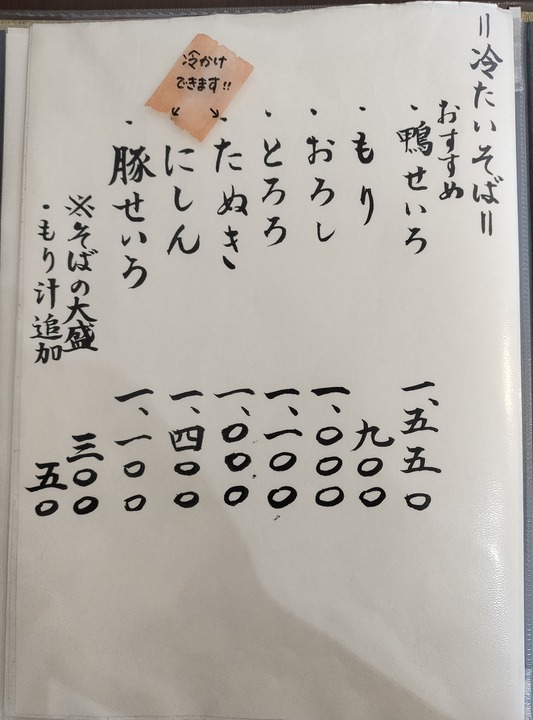 =冷たいそば=
おすすめ
・鴨せいろ 一、五五〇
・もり 九〇〇
・おろし 一、〇〇〇
・とろろ 一、一〇〇
・たぬき 一、〇〇〇
・にしん 一、四〇〇
冷かけ
できます!!
↙ ↘
・豚せいろ 一、一〇〇
※そばの大盛 三〇〇
・もり汁追加 五〇